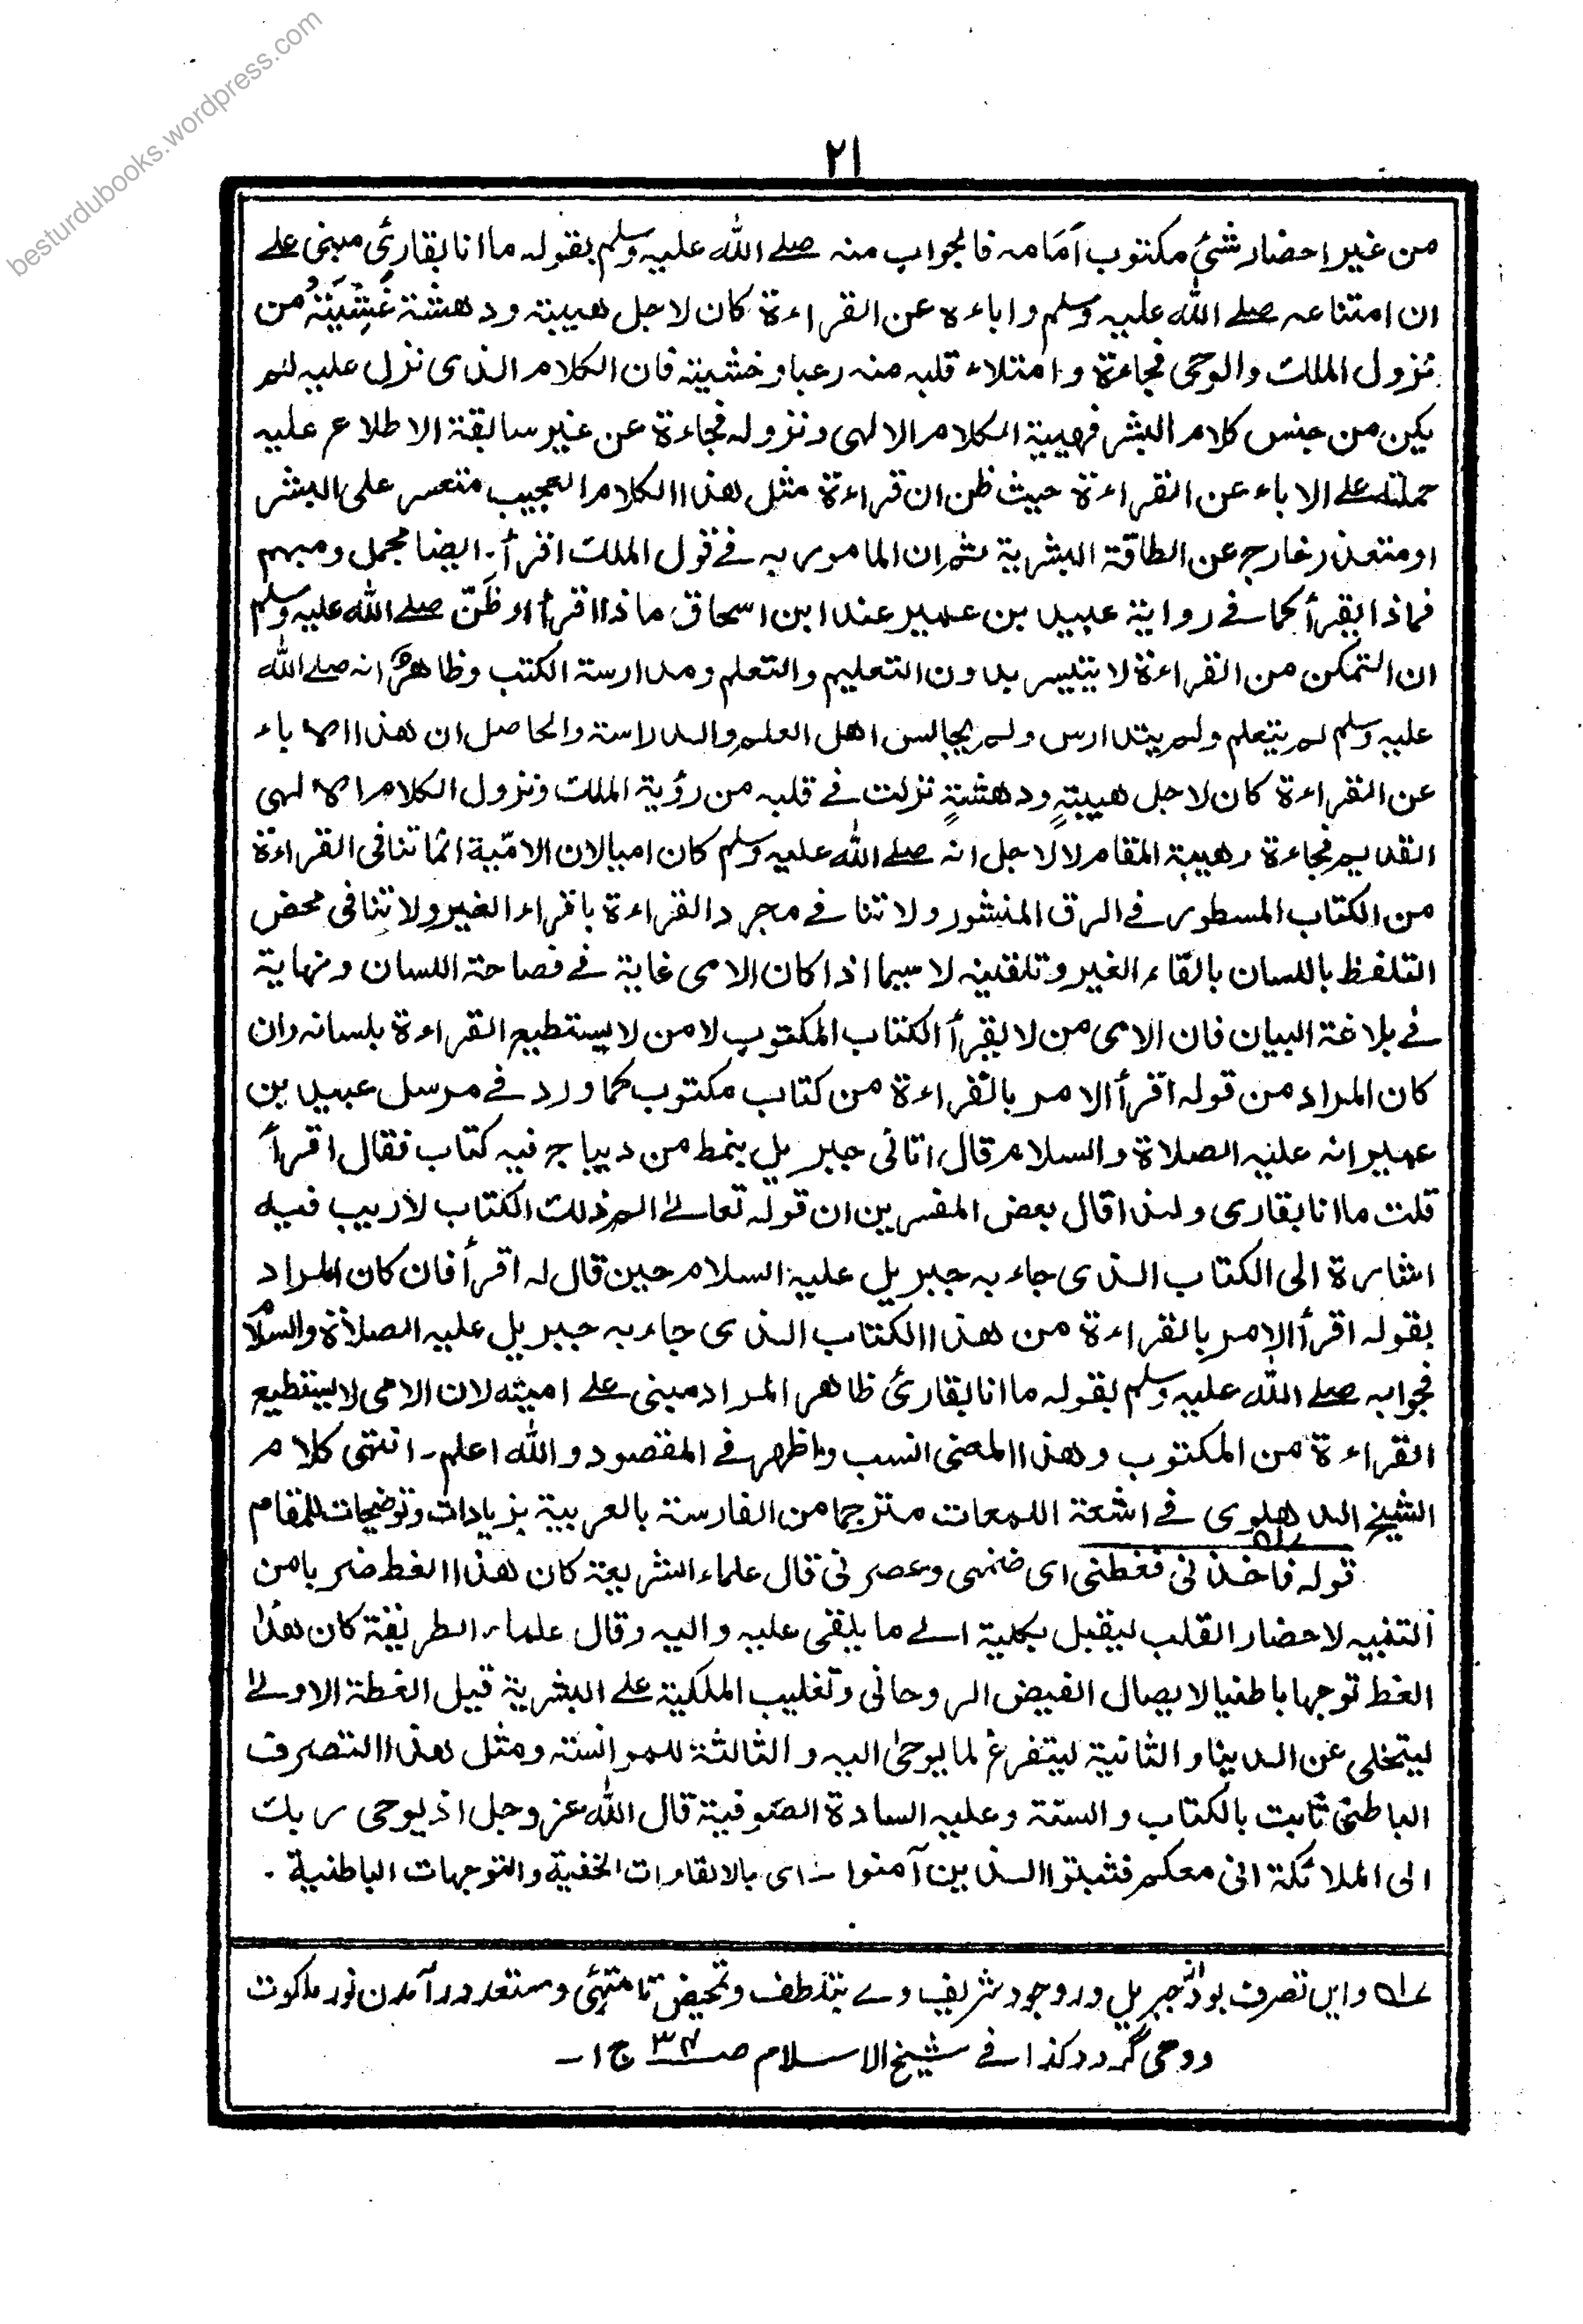 besturdubooks.wordpress.com
٢١
من غير احضار شئ مكتوب اَمَامه فالجواب منه صلے الله عليه وسلم بقوله ما انا بقارئ مبنى علے
ان امتناعه صلے الله عليه وسلم واباءه عن القراءة كان لاجل هيبته ودهشة غَشِيَتْهُ من
نزول الملك والوحى فجاءة وامتلاء قلبه منه رعبا وخشيته فان الكلام الذى نزل عليه لم
يكن من جنس كلام البشر فهيبة الكلام الالهى ونزوله فجاءة عن غير سابقة الاطلاع عليه
حملته علے الاباء عن القراءة حيث ظن ان قراءة مثل هذا الكلام العجيب متعسر على البشر
او متعذر خارج عن الطاقة البشرية ثم ان المامور به فے قول الملك اقرأ ـ ايضا مجمل ومبهم
فماذا يقرأ كما فے رواية عبيد بن عمير عند ابن اسحاق ماذا اقرأ او ظَنّ صلے الله عليه وسلم
ان التمكن من القراءة لا يتيسر بدون التعليم والتعلم ومدارسة الكتب وظاهرٌ انه صلے الله
عليه وسلم لم يتعلم ولم يتدارس ولم يجالس اهل العلم والدراسة والحاصل ان هذا الاباء
عن القراءة كان لاجل هيبتهٍ ودهشةٍ نزلت فے قلبه من رؤية الملك ونزول الكلام الالهى
القديم فجاءة وهيبة المقام لا لاجل انه صلے الله عليه وسلم كان اميا لان الامّية انما تنافى القراءة
من الكتاب المسطور فے الرق المنشور ولا تنافے مجرد القراءة باقراء الغير ولا تنافى محض
التلفظ باللسان بالقاء الغير وتلقينه لا سيما اذا كان الامى غاية فے فصاحة اللسان ونهاية
فے بلاغة البيان فان الامى من لا يقرأ الكتاب المكتوب لا من لا يستطيع القراءة بلسانه وان
كان المراد من قوله اقرأ الامر بالقراءة من كتاب مكتوب كما ورد فے مرسل عبيد بن
عمير انه عليه الصلاة والسلام قال اتانى جبريل بنمط من ديباج فيه كتاب فقال اقرأ
قلت ما انا بقارى ولذا قال بعض المفسرين ان قوله تعالےٰ الم ذلك الكتاب لاريب فيه
اشارة الى الكتاب الذى جاء به جبريل عليه السلام حين قال له اقرأ فان كان المراد
بقوله اقرأ الامر بالقراءة من هذا الكتاب الذى جاء به جبريل عليه الصلاة والسلام
فجوابه صلے الله عليه وسلم بقوله ما انا بقارئ ظاهر المراد مبنى علے اميته لان الامى لا يستطيع
القراءة من المكتوب وهذا المعنى انسب واظهر فے المقصود والله اعلم ـ انتهى كلام
الشيخ الدهلوى فے اشعة اللمعات مترجما من الفارسة بالعربية بزيادات وتوضيحات للمقام
قوله فاخذنى فغطنى اى ضمنى وعصرنى قال علماء الشريعة كان هذا الغط ضربا من
التنبيه لاحضار القلب ليقبل بكلية الے ما يلقى عليه واليه وقال علماء الطريقة كان هذا
الغط توجها باطنيا لايصال الفيض الروحانى وتغليب الملكية علے البشرية قيل الغطة الاولےٰ
ليتخلى عن الدينا والثانية ليتفرغ لما يوحىٰ اليه والثالثة للموانسته ومثل هذا التصرف
الباطنى ثابت بالكتاب والسنة وعليه السادة الصوفية قال الله عز وجل اذ يوحى ربك
الى الملائكة انى معكم فثبتوا الذين آمنوا ـ اى بالالقاءات الخفية والتوجهات الباطنية .
لـه وايں تصرف بود از جبريل در وجود شريف وے بتلطف وتمحيض تا متهئ ومستعد در آمدن نور ملكوت
ووحى گردد كذا فے شيخ الاسلام صـ ٣٤ ج ١ ـ